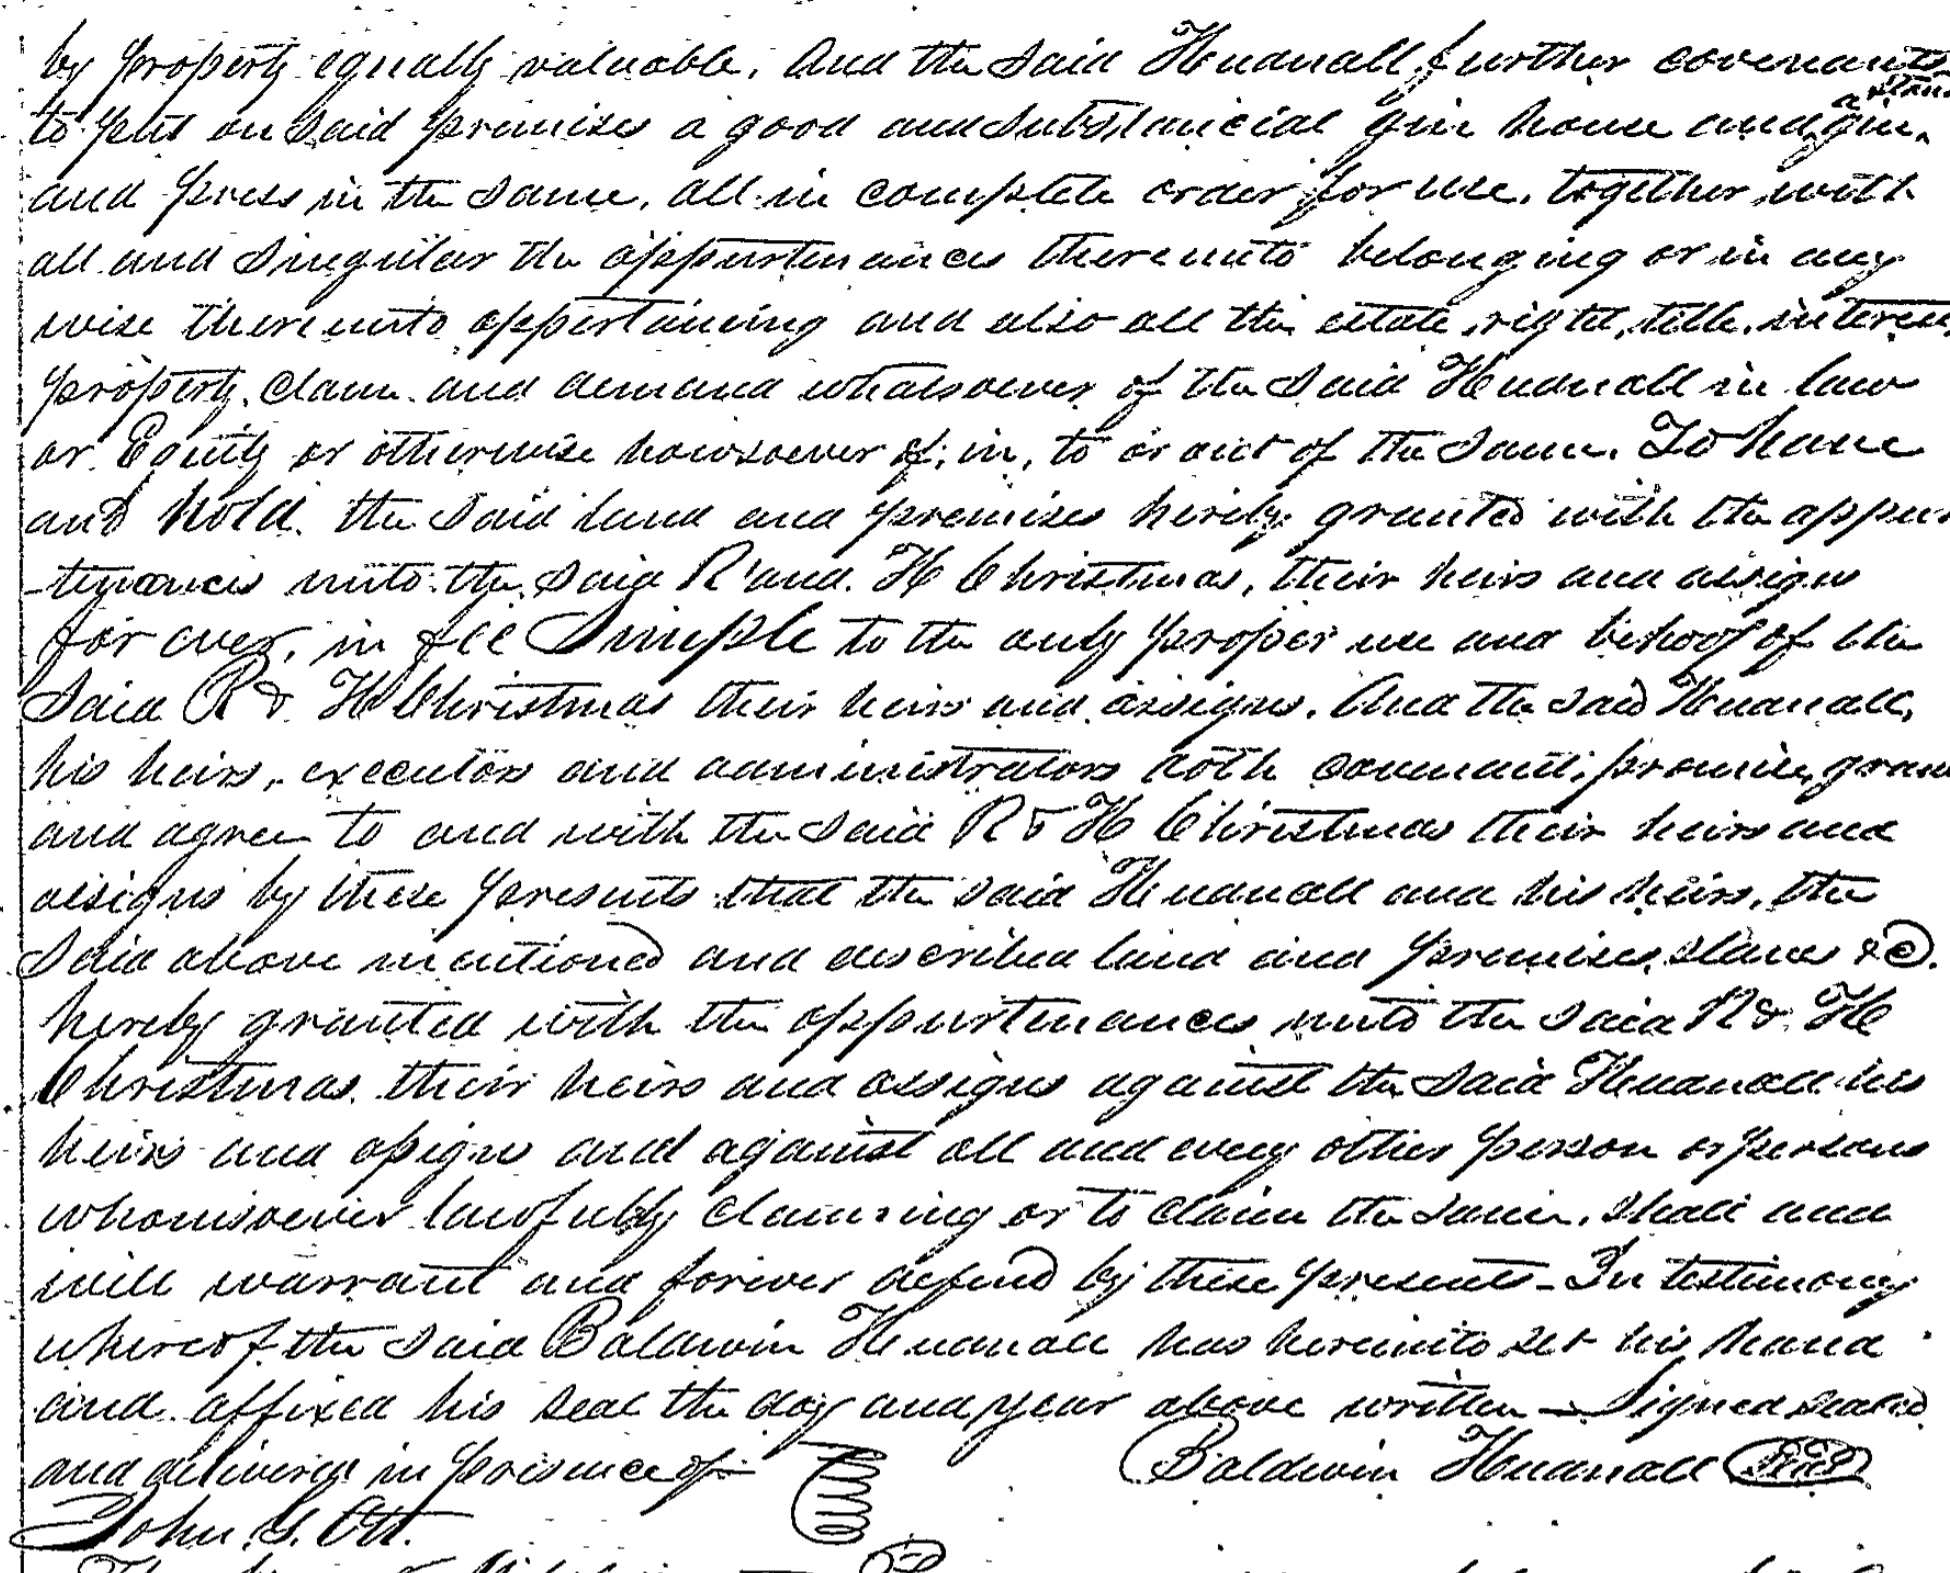 by property equally valuable. And the said Hudnall, further covenants
to put on said premises a good and substancial gin house and a gin.
and press in the same, all in complete order for use, together with
all and singular the appurtenances thereunto belonging or in any
wise thereunto appertaining and also all the estate, right, title, interest
property, claim and demand whatsoever of the said Hudnall in law
or Equity or otherwise howsoever of, in, to or out of the same. To have
and hold the said land and premises hereby granted with the appur
-tenances unto the said R and H Christmas, their heirs and assigns
for ever, in fee Simple to the only proper use and behoof of the
said R & H Christmas their heirs and assigns. And the said Hudnall,
his heirs, executors and administrators doth covenant, promise, grant
and agree to and with the said R & H Christmas their heirs and
assigns by these presents that the said Hudnall and his heirs, the
said above mentioned and described land and premises, slaves &c.
hereby granted with the appurtenances unto the said R & H
Christmas their heirs and assigns against the said Hudnall his
heirs and assigns and against all and every other person or persons
whomsoever lawfully claiming or to claim the same, shall and
will warrant and forever defend by these presents - In testimony
whereof the said Baldwin Hudnall has hereunto set his hand
and affixed his seal the day and year above written - Signed sealed
and delivered in presence of
Baldwin Hudnall Seal
John S. Ott.